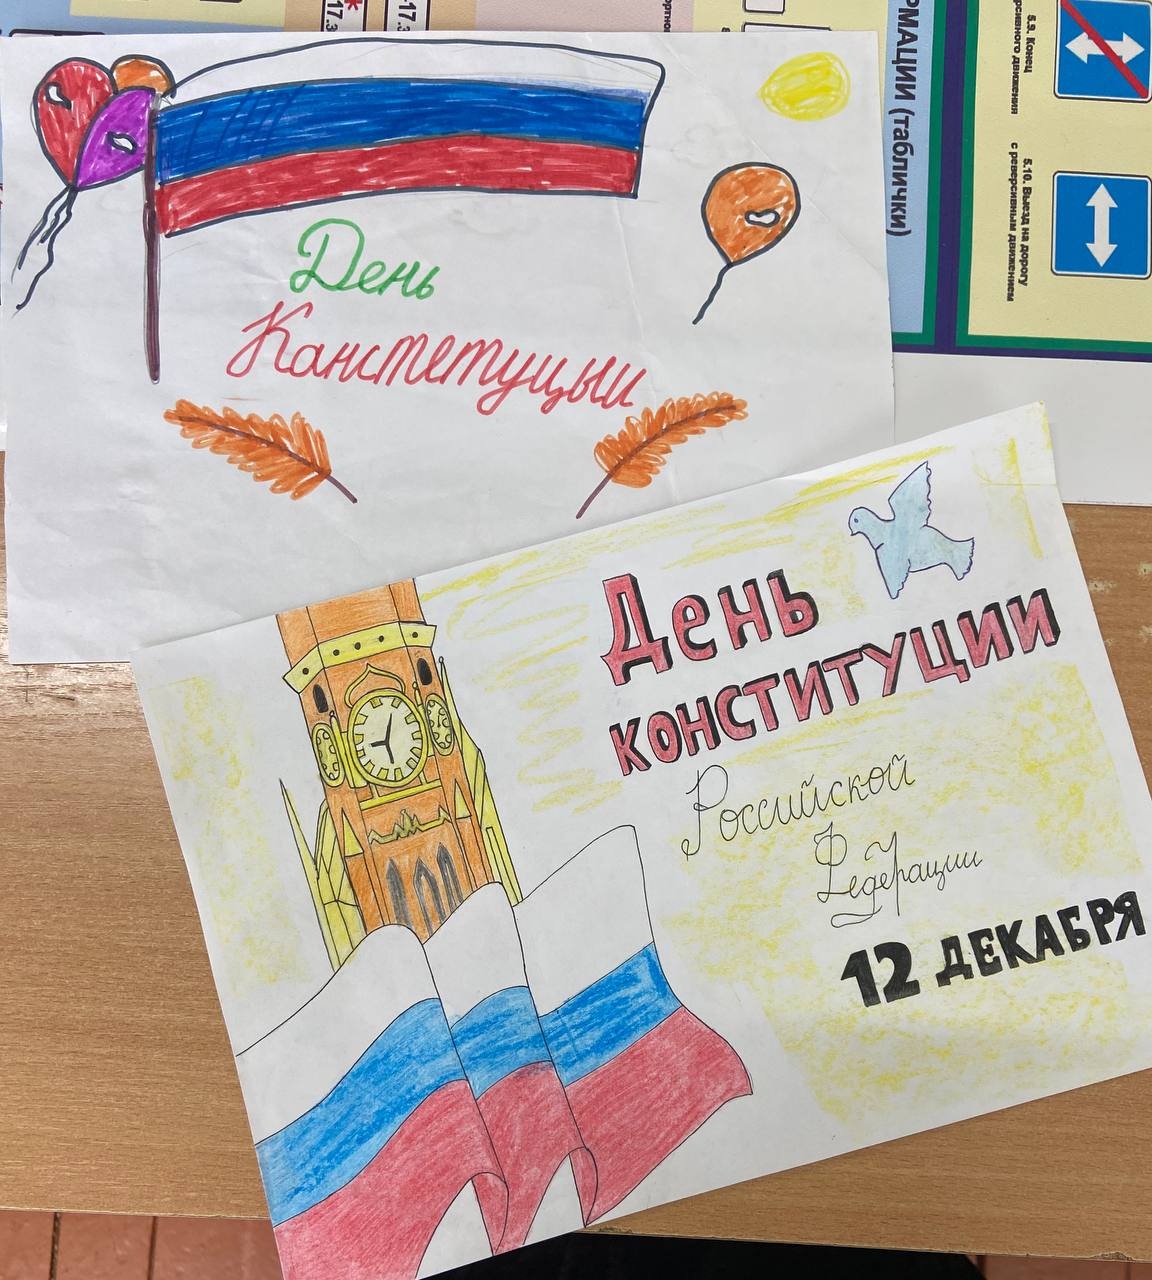 День
Канстетуцыи
День
конституции
Российской
Федерации
12 ДЕКАБРЯ
РМАЦИИ (таблички)
5.9. Конец
реверсивного движения
5.10. Выезд на дорогу
с реверсивным движением